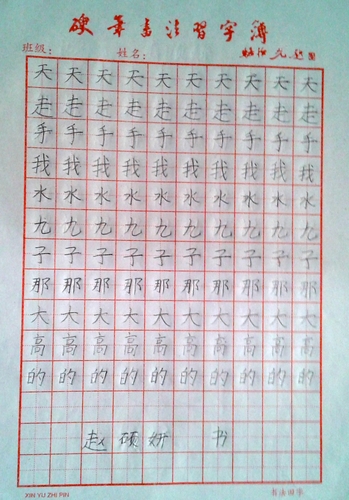 硬筆書法習字簿
班级： 姓名：
天天天天天天天天天天
走走走走走走走走走走
手手手手手手手手手手
我我我我我我我我我我
水水水水水水水水水水
九九九九九九九九九九
子子子子子子子子子子
那那那那那那那那那那
大大大大大大大大大大
高高高高高高高高高高
的的的的的的的的的的
赵硕妍 书
XIN YU ZHI PIN 书法田字